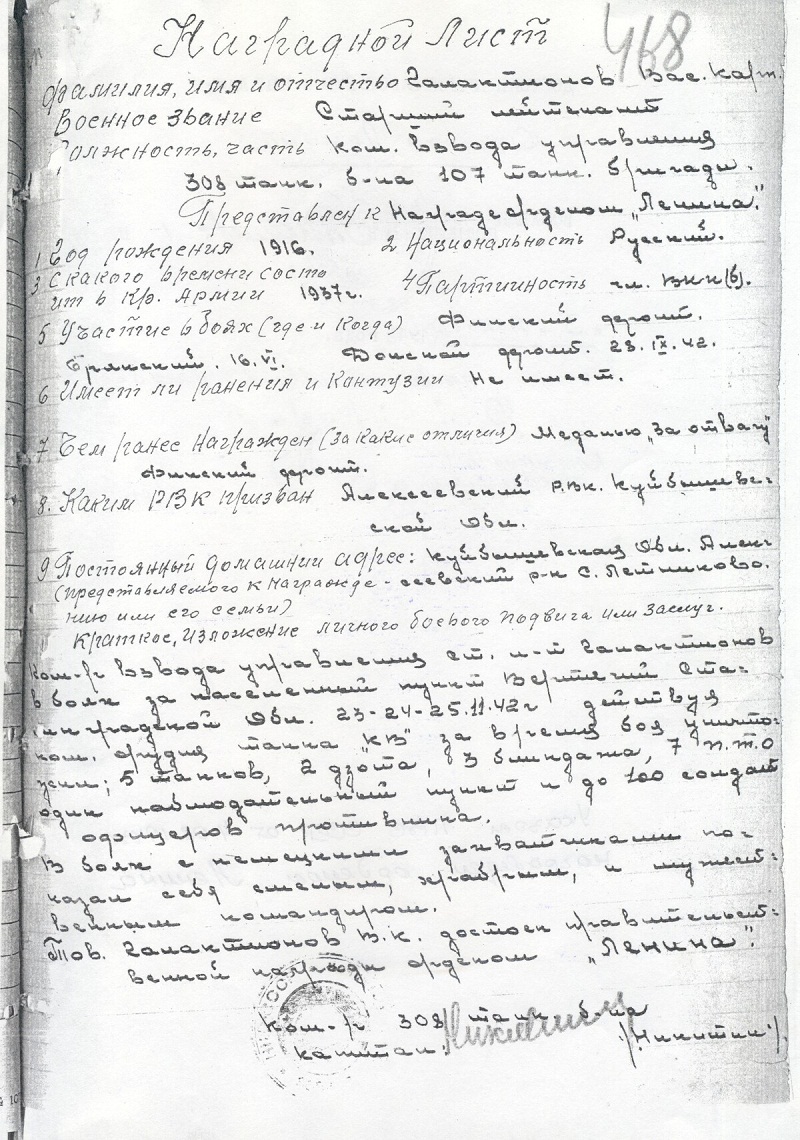 468
Наградной Лист
Фамилия, имя и отчество Галактионов Вас. Карп.
Военное звание Старший лейтенант
Должность, часть Ком. взвода управления
308 танк. б-на 107 танк. бригады.
Представлен к Награде орденом „Ленина".
1 Год рождения 1916. 2 Национальность Русский.
3 С какого времени состо
ит в Кр. Армии 1937г. 4 Партийность чл. ВКП(б).
5 Участие в боях (где и когда) Финский фронт.
Брянский. 16.VI. Донской фронт. 23.IX.42.
6 Имеет ли ранения и Контузии Не имеет.
7 Чем ранее Награжден (за какие отличия) Медалью „За отвагу"
Финский фронт.
8. Каким РВК призван Алексеевский Р.В.К. Куйбышев-
ской Обл.
9 Постоянный домашний адрес: Куйбышевская Обл. Алек-
(представляемого к Награжде- сеевский р-н С. Летниково.
нию или его семьи)
Краткое, изложение личного боевого подвига или заслуг.
Ком-р взвода управления ст. л-т Галактионов
в боях за населенный пункт Вертячий Ста-
линградской Обл. 23-24-25.11.42г действуя
ком. орудия танка „КВ" за время боя уничто-
жил; 5 танков, 2 дзота, 3 блиндажа, 7 п.т.о
один наблюдательный пункт и до 100 солдат
офицеров противника.
В боях с немецкими захватчиками по-
казал себя смелым, храбрым, и мужест-
венным командиром.
Тов. Галактионов В.К. достоин правительст-
венной награды орденом „Ленина".
Ком-р 308 танк. б-на
капитан: /Никитин/.